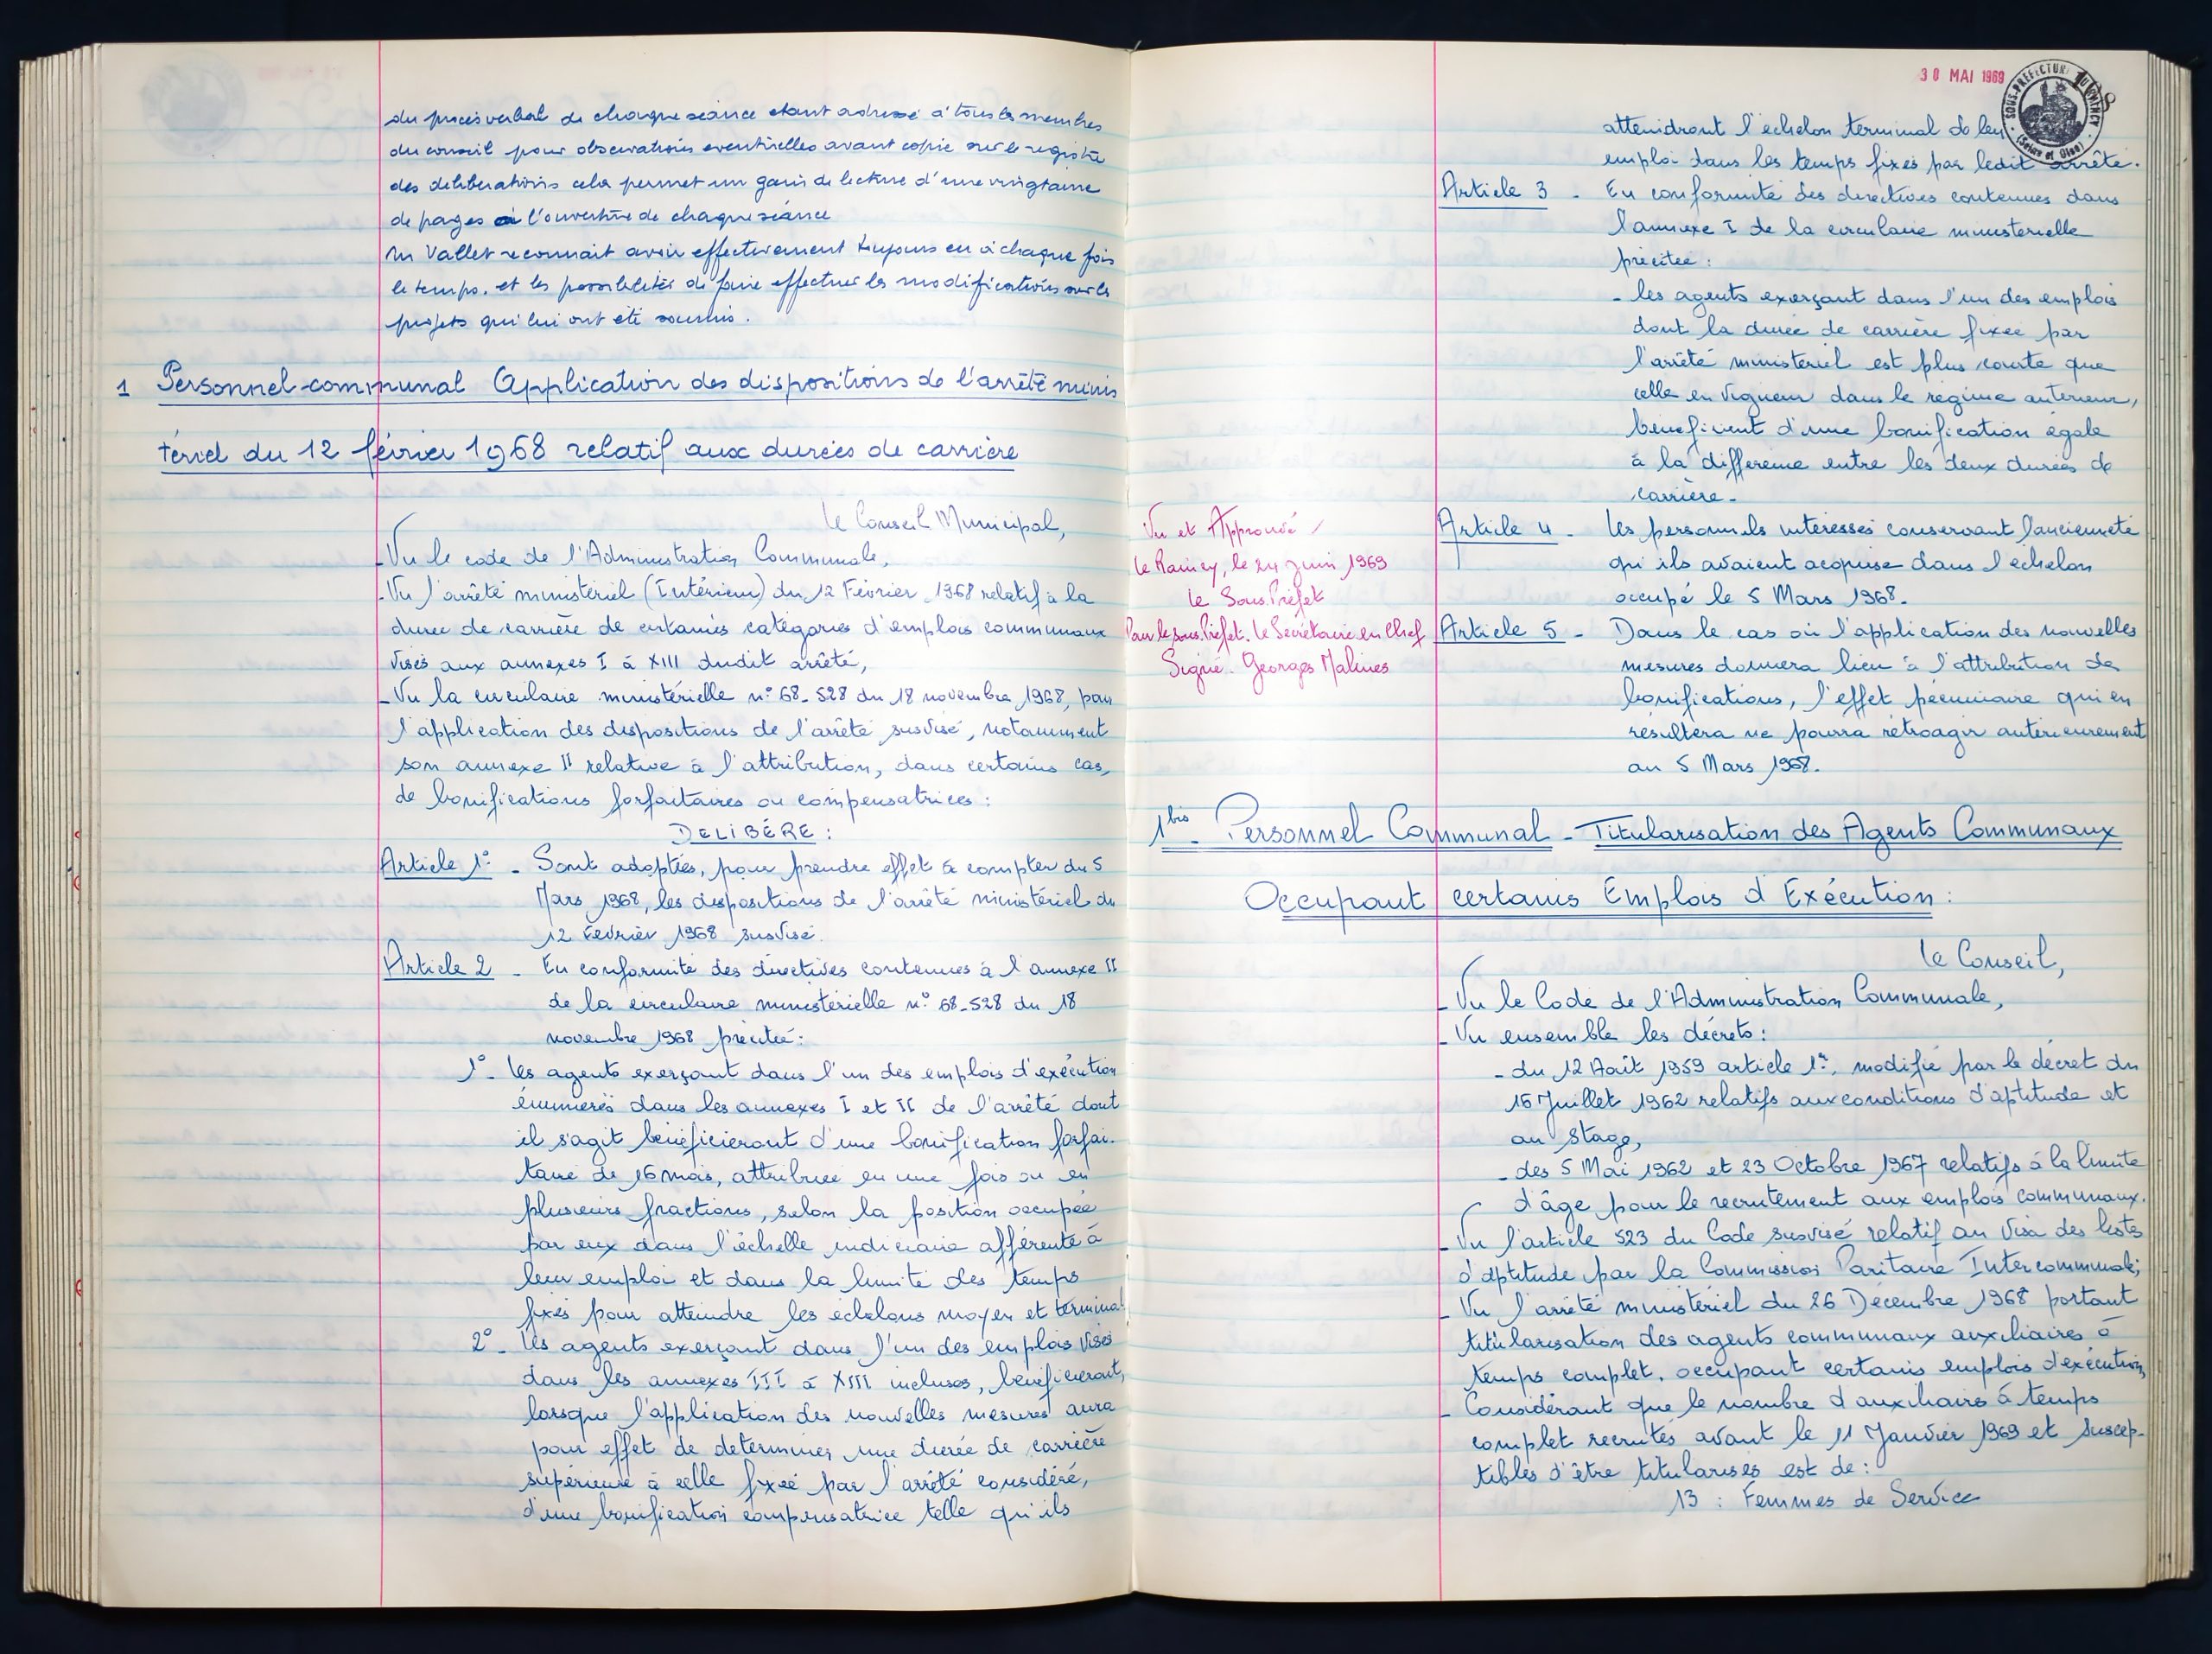 du procès verbal de chaque séance étant adressé à tous les membres
du conseil pour observations eventuelles avant copie sur le registre
des deliberations cela permet un gain de lecture d'une vingtaine
de pages à l'ouverture de chaque séance
Mr Vallet reconnait avoir effectivement toujours eu à chaque fois
le temps. et les possibilités de faire effectuer les modifications sur les
projets qui lui ont été soumis.
1 Personnel-communal Application des dispositions de l'arrêté minis
tériel du 12 février 1968 relatif aux durées de carrière
le Conseil Municipal,
- Vu le code de l'Administration Communale,
- Vu l'arrêté ministériel (Intérieur) du 12 Février 1968 relatif à la
durée de carrière de certaines catégories d'emplois communaux
visés aux annexes I à XIII dudit arrêté,
- Vu la circulaire ministérielle n° 68-528 du 18 novembre 1968, pour
l'application des dispositions de l'arrêté susvisé, notamment
son annexe II relative à l'attribution, dans certains cas,
de bonifications forfaitaires ou compensatrices :
DELIBÈRE :
Article 1° - Sont adoptées, pour prendre effet à compter du 5
Mars 1968, les dispositions de l'arrêté ministériel du
12 Février 1968 susvisé.
Article 2 - En conformité des directives contenues à l'annexe II
de la circulaire ministérielle n° 68-528 du 18
novembre 1968 précitée :
1° - les agents exerçant dans l'un des emplois d'exécution
énumérés dans les annexes I et II de l'arrêté dont
il s'agit bénéficieront d'une bonification forfai-
taire de 16 mois, attribuée en une fois ou en
plusieurs fractions, selon la position occupée
par eux dans l'échelle indiciaire afférente à
leur emploi et dans la limite des temps
fixés pour atteindre les échelons moyen et terminal
2° - les agents exerçant dans l'un des emplois visés
dans les annexes III à XIII incluses, bénéficieront,
lorsque l'application des nouvelles mesures aura
pour effet de déterminer une durée de carrière
supérieure à celle fixée par l'arrêté considéré,
d'une bonification compensatrice telle qu'ils
30 MAI 1969
SOUS-PREFECTURE
(Seine et Oise)
atteindront l'échelon terminal de leur
emploi dans les temps fixés par ledit arrêté.
Article 3 - En conformité des directives contenues dans
l'annexe I de la circulaire ministérielle
précitée :
- les agents exerçant dans l'un des emplois
dont la durée de carrière fixée par
l'arrêté ministériel est plus courte que
celle en vigueur dans le régime antérieur,
bénéficient d'une bonification égale
à la différence entre les deux durées de
carrière -
Vu et Approuvé
le Raincy, le 24 juin 1969
le Sous-Préfet
Pour le sous-Préfet. le Secrétaire en Chef
Signé - Georges Malines
Article 4 - les personnels intéressés conservant l'ancienneté
qu'ils avaient acquise dans l'échelon
occupé le 5 Mars 1968.
Article 5 - Dans le cas où l'application des nouvelles
mesures donnera lieu à l'attribution de
bonifications, l'effet pécuniaire qui en
résultera ne pourra rétroagir antérieurement
au 5 Mars 1968.
1bis - Personnel Communal - Titularisation des Agents Communaux
Occupant certains Emplois d'Exécution :
le Conseil,
- Vu le Code de l'Administration Communale,
- Vu ensemble les décrets :
- du 12 Août 1959 article 1er, modifié par le décret du
16 Juillet 1962 relatifs aux conditions d'aptitude et
au stage,
- des 5 Mai 1962 et 23 Octobre 1967 relatifs à la limite
d'âge pour le recrutement aux emplois communaux.
- Vu l'article 523 du Code susvisé relatif au visa des listes
d'aptitude par la Commission Paritaire Intercommunale;
- Vu l'arrêté ministériel du 26 Décembre 1968 portant
titularisation des agents communaux auxiliaires à
temps complet, occupant certains emplois d'exécution,
- Considérant que le nombre d'auxiliaires à temps
complet recrutés avant le 11 Janvier 1969 et suscep-
tibles d'être titularisés est de :
13 : Femmes de Service